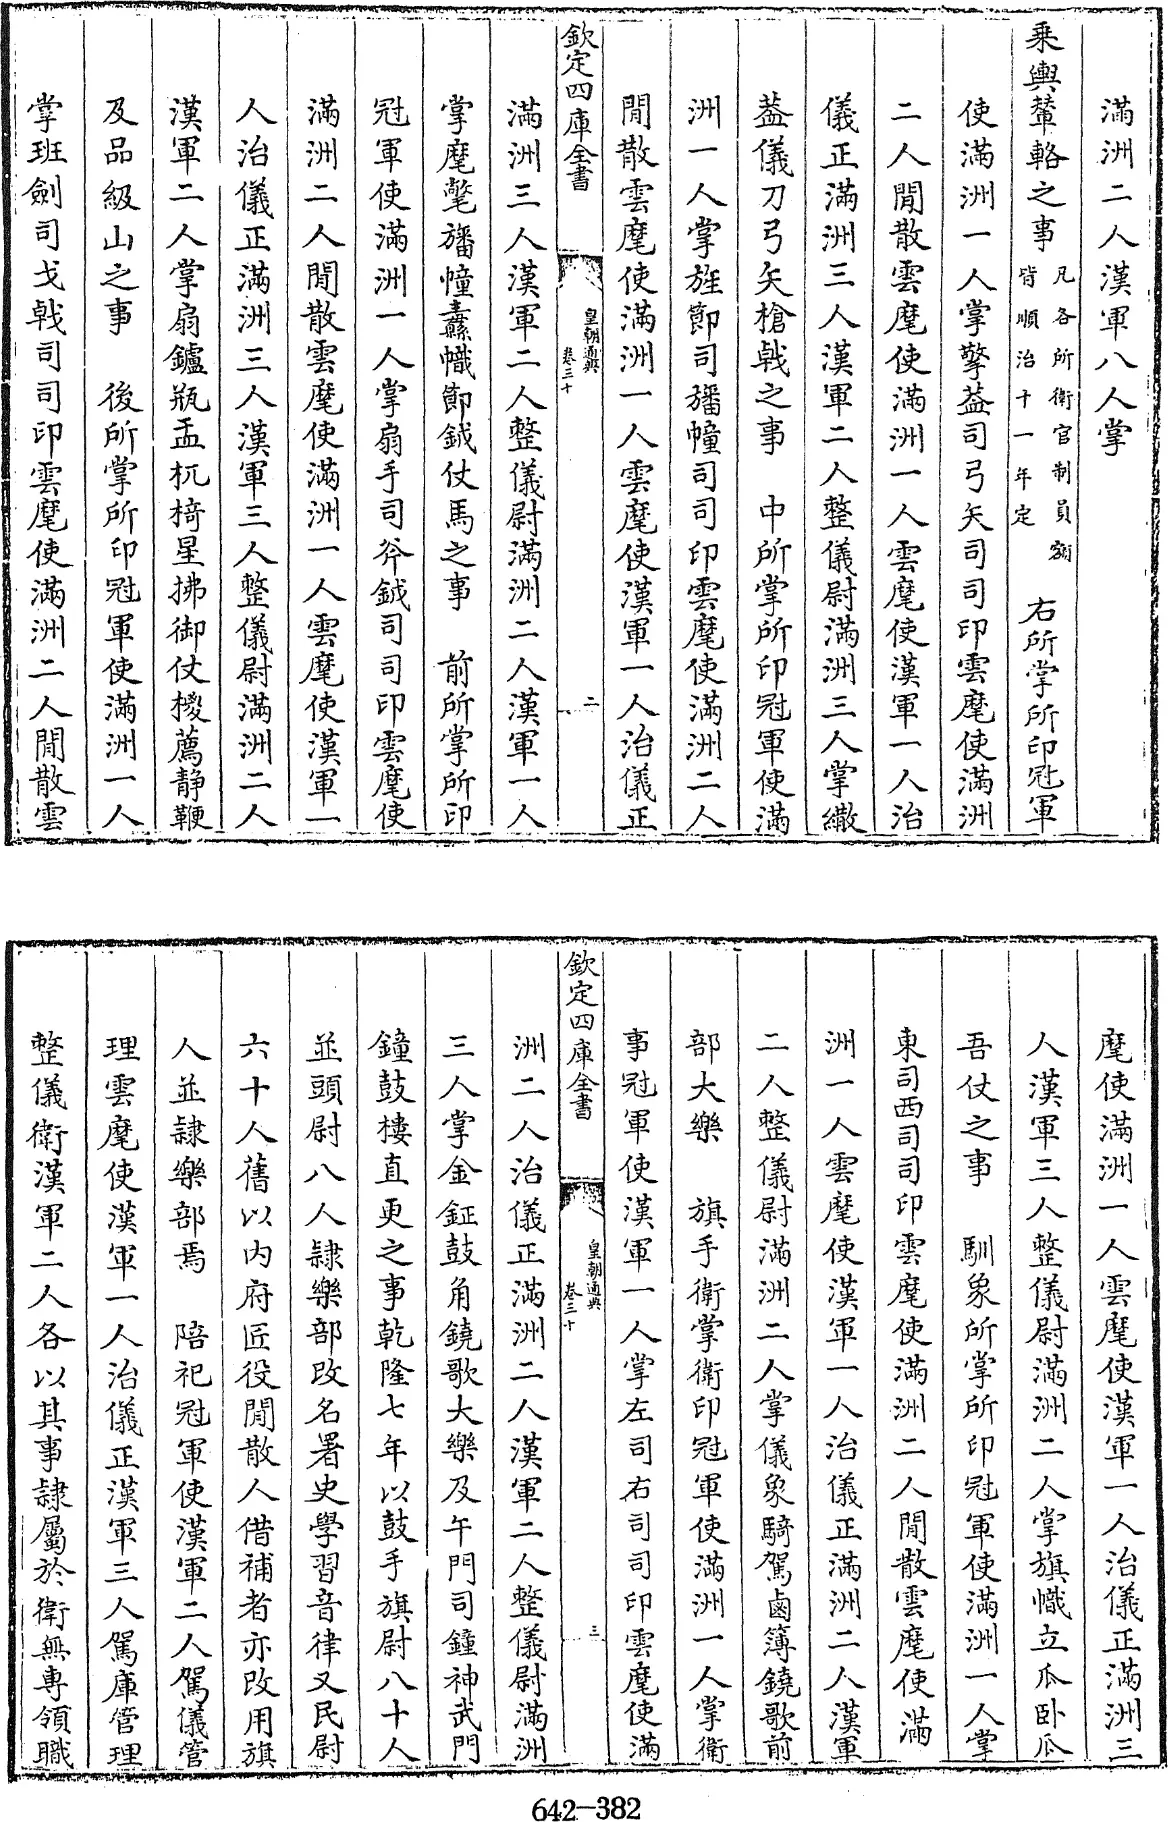 滿洲二人漢軍八人掌
乘輿輦輅之事凡各所衛官制員額皆順治十一年定　右所掌所印冠軍
使滿洲一人掌擎葢司弓矢司司印雲麾使滿洲
二人閒散雲麾使滿洲一人雲麾使漢軍一人治
儀正滿洲三人漢軍二人整儀尉滿洲三人掌繖
葢儀刀弓矢槍戟之事　中所掌所印冠軍使滿
洲一人掌旌節司旛幢司司印雲麾使滿洲二人
閒散雲麾使滿洲一人雲麾使漢軍一人治儀正
欽定四庫全書　皇朝通典卷三十　二
滿洲三人漢軍二人整儀尉滿洲二人漢軍一人
掌麾氅旛幢纛幟節鉞仗馬之事　前所掌所印
冠軍使滿洲一人掌扇手司斧鉞司司印雲麾使
滿洲二人閒散雲麾使滿洲一人雲麾使漢軍一
人治儀正滿洲三人漢軍三人整儀尉滿洲二人
漢軍二人掌扇鑪瓶盂杌椅星拂御仗椶薦静鞭
及品級山之事　後所掌所印冠軍使滿洲一人
掌班劍司戈戟司司印雲麾使滿洲二人閒散雲
麾使滿洲一人雲麾使漢軍一人治儀正滿洲三
人漢軍三人整儀尉滿洲二人掌旗幟立瓜卧瓜
吾仗之事　馴象所掌所印冠軍使滿洲一人掌
東司西司司印雲麾使滿洲二人閒散雲麾使滿
洲一人雲麾使漢軍一人治儀正滿洲二人漢軍
二人整儀尉滿洲二人掌儀象騎駕鹵簿鐃歌前
部大樂　旗手衛掌衛印冠軍使滿洲一人掌衛
事冠軍使漢軍一人掌左司右司司印雲麾使滿
欽定四庫全書　皇朝通典卷三十　三
洲二人治儀正滿洲二人漢軍二人整儀尉滿洲
三人掌金鉦鼓角鐃歌大樂及午門司鐘神武門
鐘鼓樓直更之事乾隆七年以鼓手旗尉八十人
並頭尉八人隷樂部改名署史學習音律又民尉
六十人舊以内府匠役閒散人借補者亦改用旗
人並隷樂部焉　陪祀冠軍使漢軍二人駕儀管
理雲麾使漢軍一人治儀正漢軍三人駕庫管理
整儀衛漢軍二人各以其事隷屬於衛無專領職
642-382